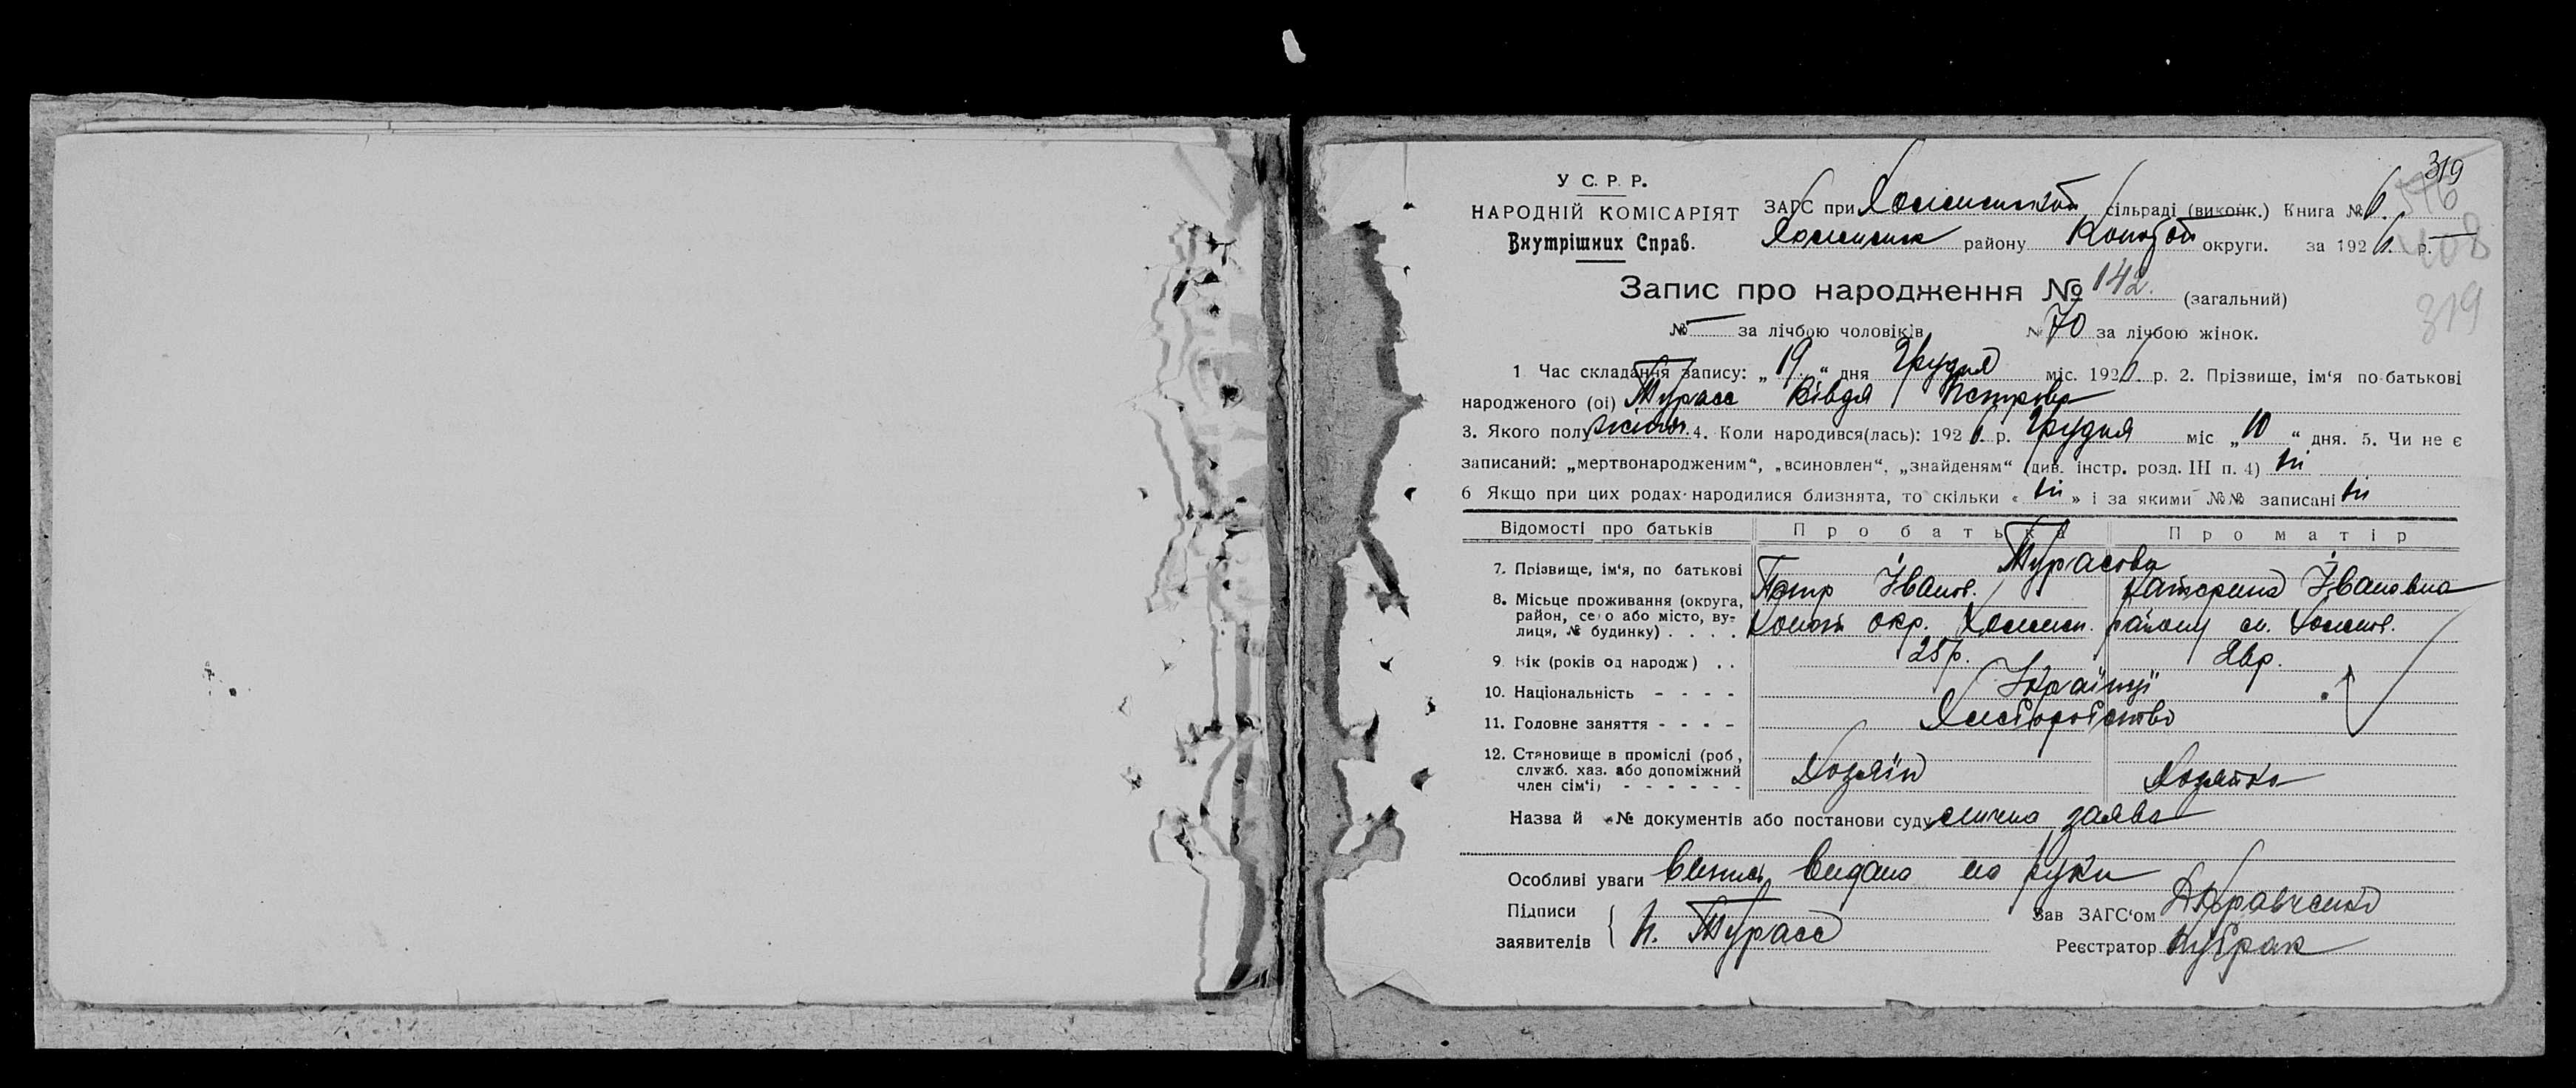 319
546
408
319
У С. Р. Р.
НАРОДНІЙ КОМІСАРІЯТ
Внутрішних Справ.
ЗАГС при сільраді (виконк.) Книга № 6.
району Коното́п округи. за 1926. р.
Запис про народження № 142. (загальний)
№ — за лічбою чоловіків № 70 за лічбою жінок.
1 Час складання запису: „ 19 “ дня Грудня міс. 1926. р. 2. Прізвище, ім‘я по-батькові
народженого (ої) Турасс Вівдя Петрова
3. Якого полу жіноч. 4. Коли народився(лась): 1926. р. Грудня міс „ 10 “ дня. 5. Чи не є
записаний: „мертвонародженим“, „всиновлен“, „знайденям“ (див. інстр. розд. III п. 4) ні
6 Якщо при цих родах народилися близнята, то скільки « ні » і за якими №№ записані ні
Відомості про батьків Про батька Про матір
7. Прізвище, ім‘я, по батькові Турасови
Петр Іванов. Катерина Івановна
8. Місьце проживання (округа, район, село або місто, вулиця, № будинку) . . . . Конот окр. району
9. Вік (років од народж) . . 25р. 24р.
10. Національність - - - - Українці
11. Головне заняття - - - - Хліборобство
12. Становище в промислі (роб, служб. хаз. або допоміжний член сім‘ї) - - - - - - Хозяїн Хозяйка
Назва й №№ документів або постанови суду слична заява
Особливі уваги випись видана на руки
Підписи
заявителів { П. Турасс
Зав ЗАГС‘ом
Реєстратор Кубрак